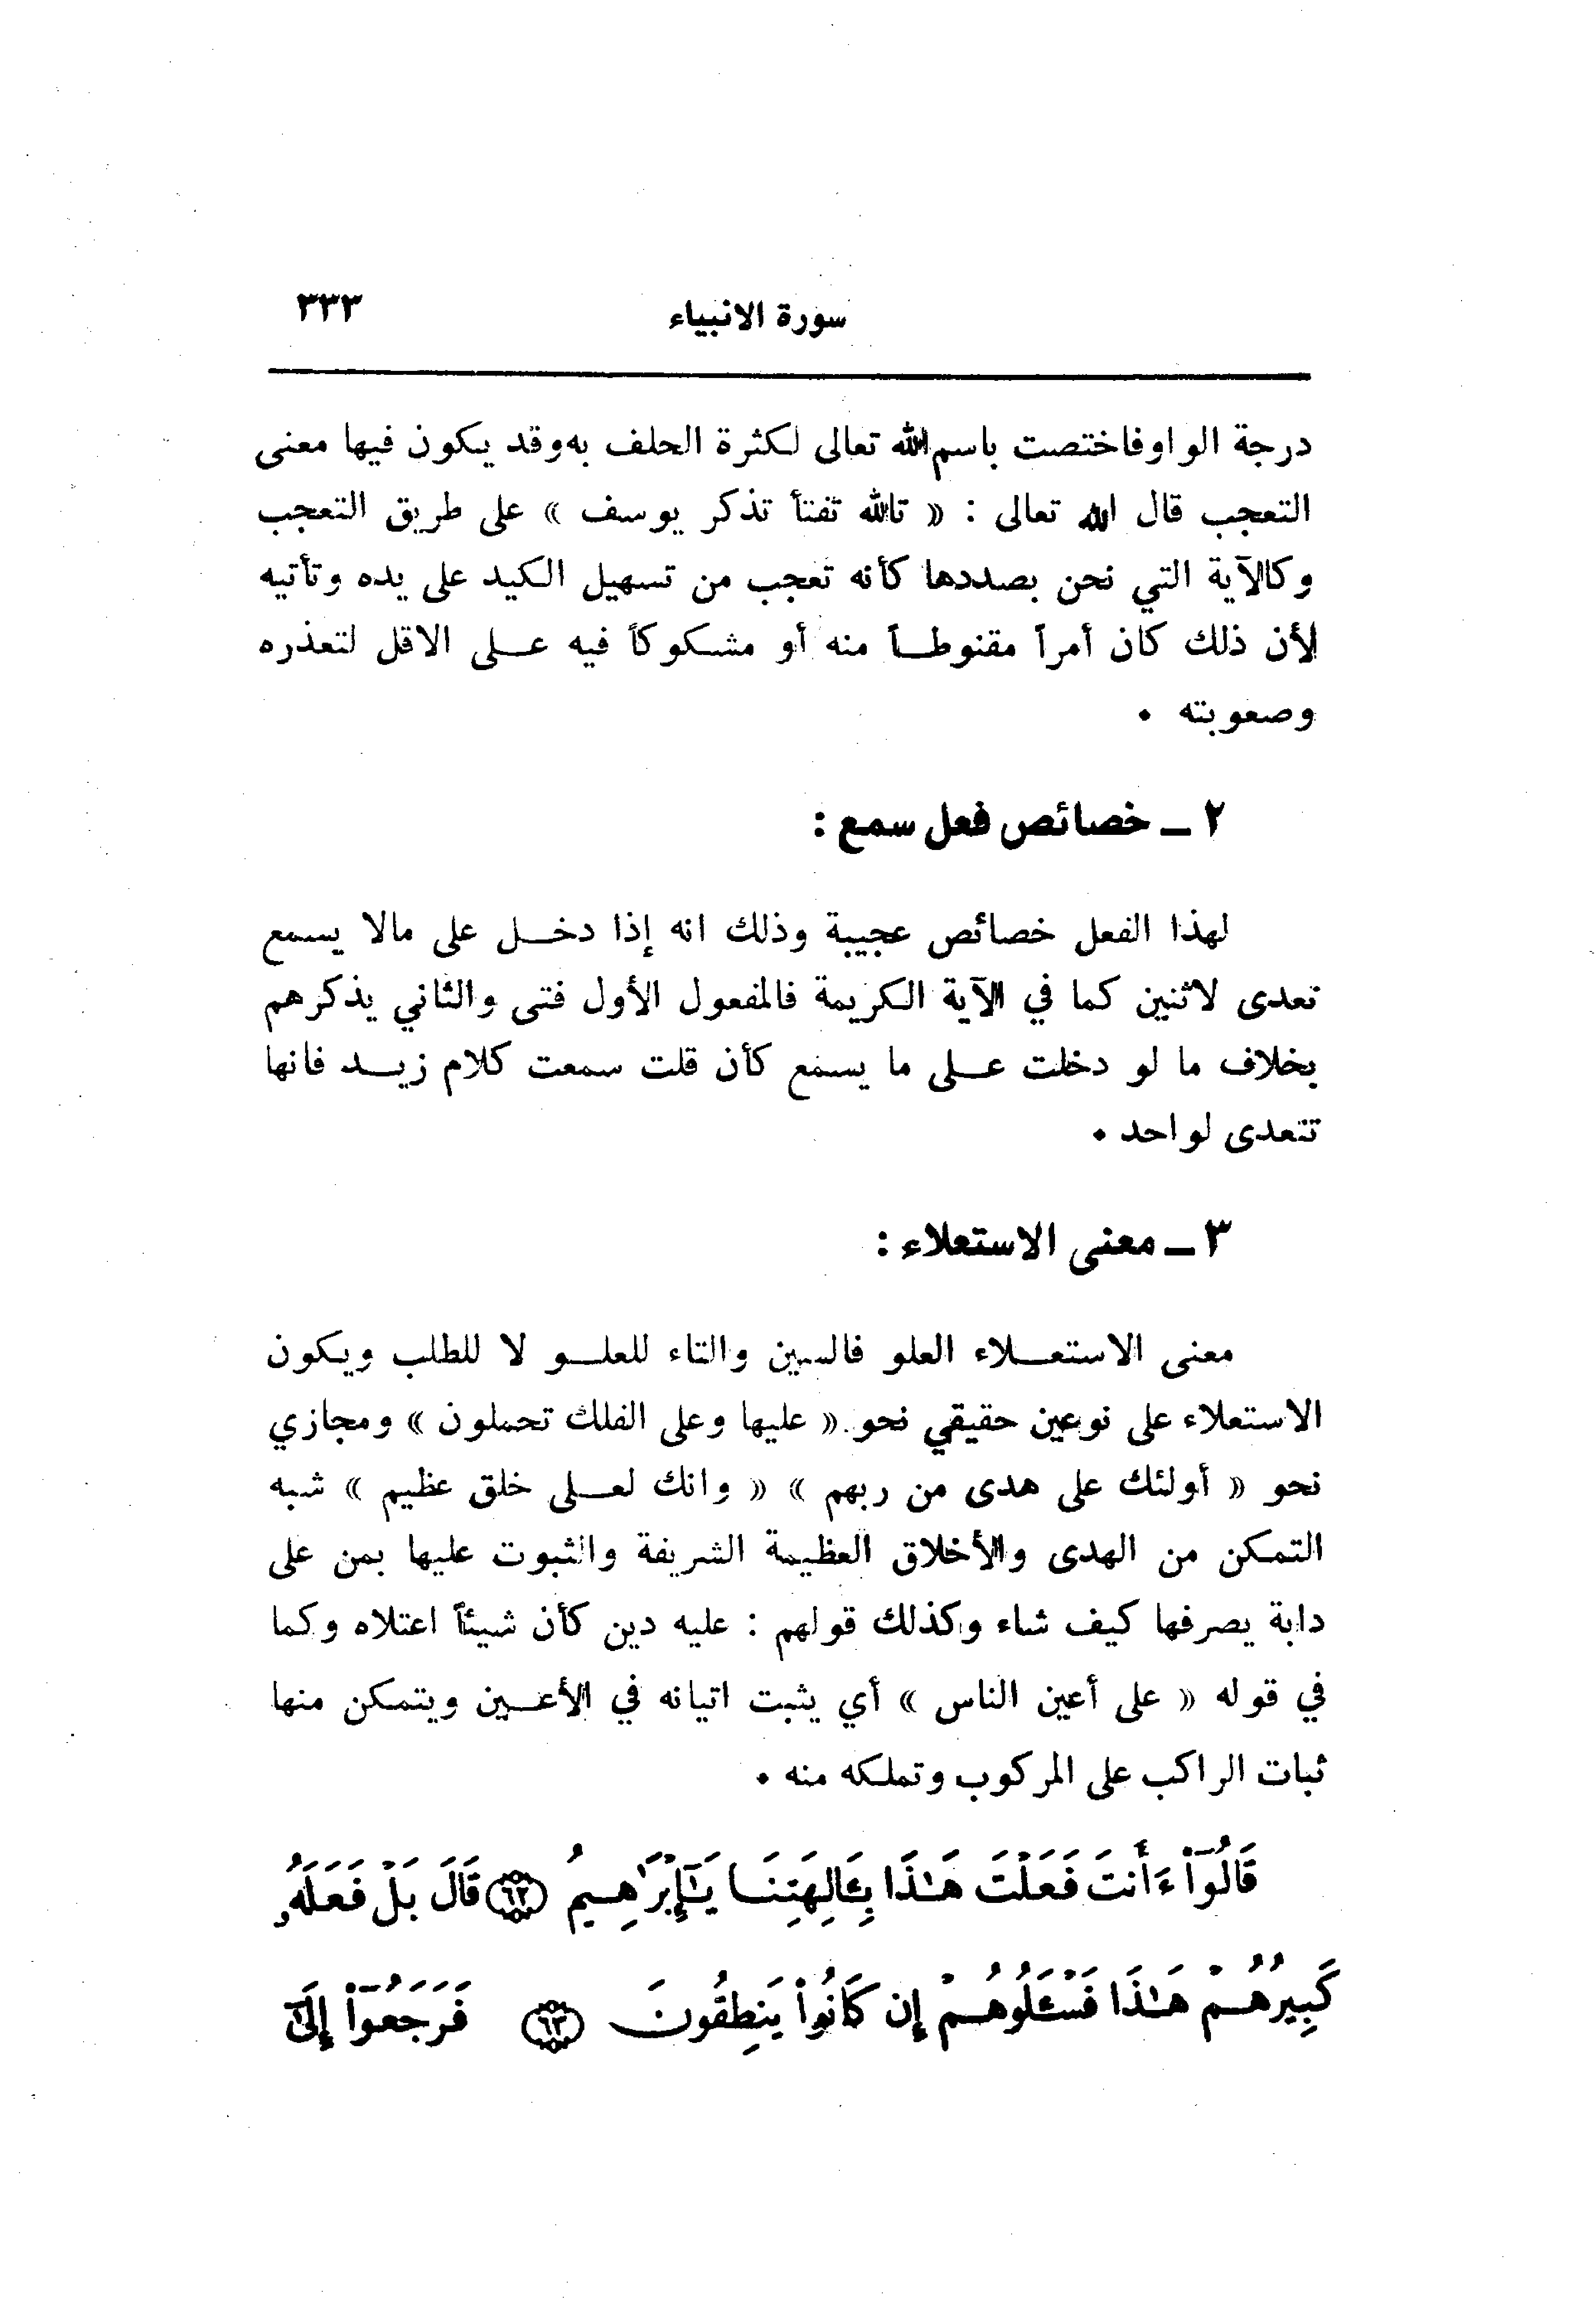 سورة الانبياء ٣٣٣
درجة الواو فاختصت باسم الله تعالى لكثرة الحلف به وقد يكون فيها معنى
التعجب قال الله تعالى : « تالله تفتأ تذكر يوسف » على طريق التعجب
وكالآية التي نحن بصددها كأنه تعجب من تسهيل الكيد على يده وتأتيه
لأن ذلك كان أمراً مقنوطاً منه أو مشكوكاً فيه على الاقل لتعذره
وصعوبته ٠
٢ ــ خصائص فعل سمع :
لهذا الفعل خصائص عجيبة وذلك انه إذا دخل على مالا يسمع
تعدى لاثنين كما في الآية الكريمة فالمفعول الأول فتى والثاني يذكرهم
بخلاف ما لو دخلت على ما يسمع كأن قلت سمعت كلام زيد فانها
تتعدى لواحد ٠
٣ ــ معنى الاستعلاء :
معنى الاستعلاء العلو فالسين والتاء للعلو لا للطلب ويكون
الاستعلاء على نوعين حقيقي نحو « عليها وعلى الفلك تحملون » ومجازي
نحو « أولئك على هدى من ربهم » « وانك لعلى خلق عظيم » شبه
التمكن من الهدى والأخلاق العظيمة الشريفة والثبوت عليها بمن على
دابة يصرفها كيف شاء وكذلك قولهم : عليه دين كأن شيئاً اعتلاه وكما
في قوله « على أعين الناس » أي يثبت اتيانه في الأعين ويتمكن منها
ثبات الراكب على المركوب وتملكه منه ٠
قَالُوٓا۟ ءَأَنتَ فَعَلْتَ هَـٰذَا بِـَٔالِهَتِنَا يَـٰٓإِبْرَٰهِيمُ ٦٢ قَالَ بَلْ فَعَلَهُۥ
كَبِيرُهُمْ هَـٰذَا فَسْـَٔلُوهُمْ إِن كَانُوا۟ يَنطِقُونَ ٦٣ فَرَجَعُوٓا۟ إِلَىٰٓ